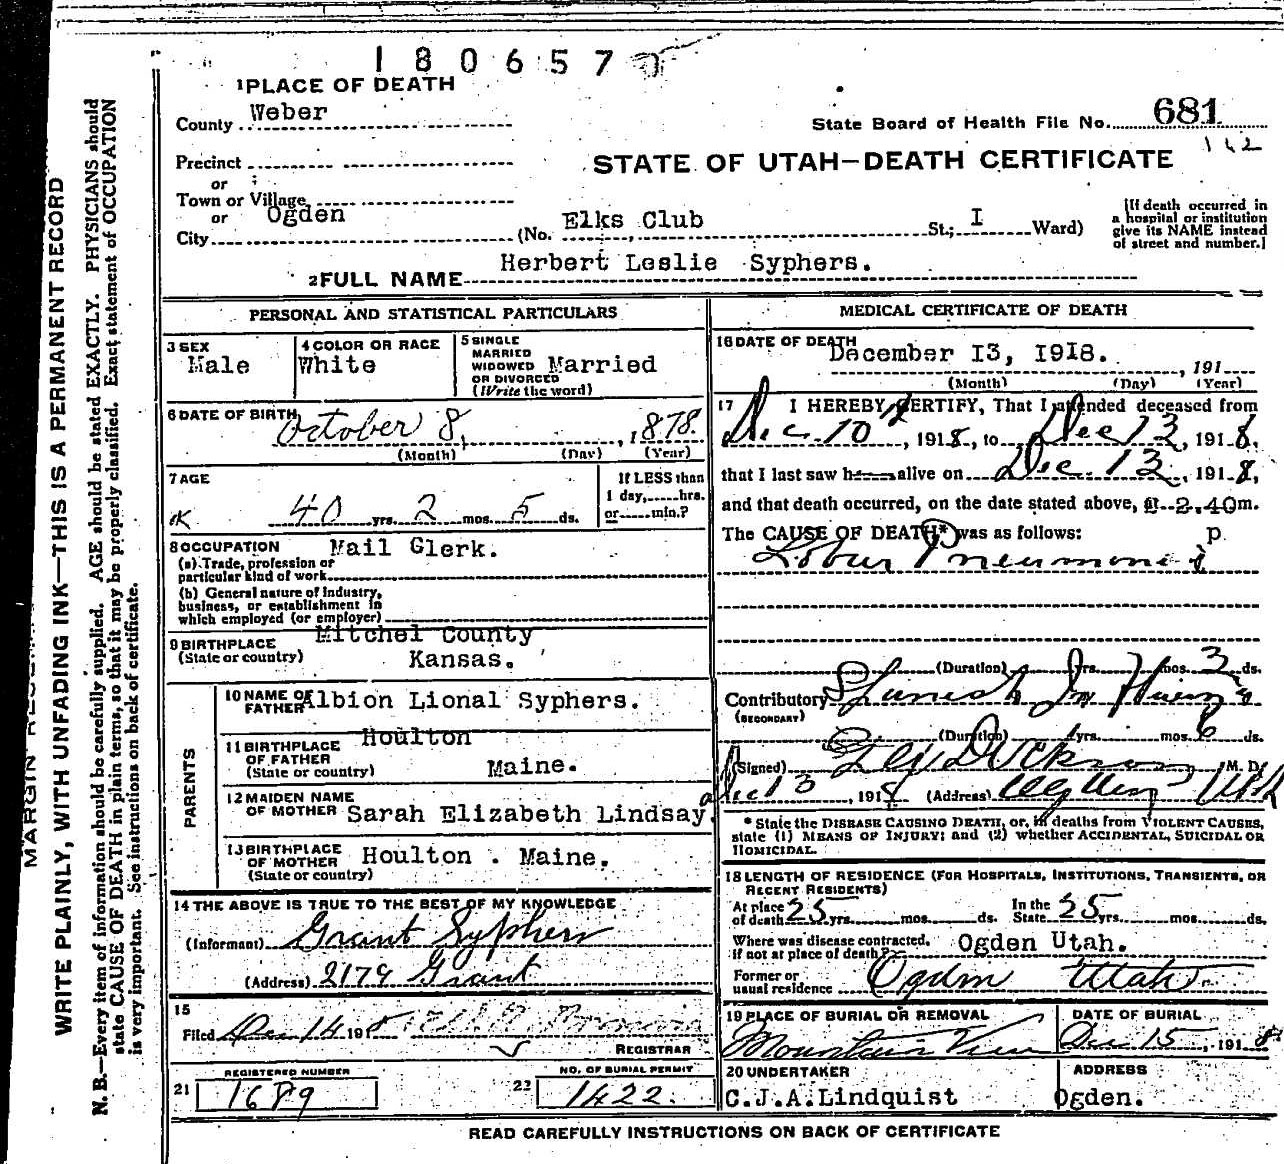 180657
1 PLACE OF DEATH
County Weber
State Board of Health File No. 681
Precinct
or
STATE OF UTAH—DEATH CERTIFICATE
Town or Village
or
City Ogden (No. Elks Club St.; I Ward)
[If death occurred in
a hospital or institution
give its NAME instead
of street and number.]
2 FULL NAME Herbert Leslie Syphers.
PERSONAL AND STATISTICAL PARTICULARS
3 SEX
Male
4 COLOR OR RACE
White
5 SINGLE
MARRIED
WIDOWED
OR DIVORCED
(Write the word)
Married
6 DATE OF BIRTH
October 8, 1878
(Month) (Day) (Year)
7 AGE
40 yrs. 2 mos. 5 ds.
If LESS than
1 day, hrs.
or min.?
8 OCCUPATION Mail Glerk.
(a) Trade, profession or
particular kind of work
(b) General nature of Industry,
business, or establishment in
which employed (or employer)
9 BIRTHPLACE
(State or country)
Mitchel County
Kansas.
PARENTS
10 NAME OF
FATHER
Albion Lional Syphers.
11 BIRTHPLACE
OF FATHER
(State or country)
Houlton
Maine.
12 MAIDEN NAME
OF MOTHER
Sarah Elizabeth Lindsay
13 BIRTHPLACE
OF MOTHER
(State or country)
Houlton . Maine.
14 THE ABOVE IS TRUE TO THE BEST OF MY KNOWLEDGE
(Informant) Grant Syphers
(Address) 2179 Grant
15
Filed Dec 14 1918
REGISTRAR
21 REGISTERED NUMBER
1689
22 NO. OF BURIAL PERMIT
1422.
MEDICAL CERTIFICATE OF DEATH
16 DATE OF DEATH
December I3, I9I8. , 191
(Month) (Day) (Year)
17 I HEREBY CERTIFY, That I attended deceased from
Dec. 10, 1918, to Dec 13, 1918,
that I last saw h alive on Dec. 13, 1918,
and that death occurred, on the date stated above, at 2.40 m.
The CAUSE OF DEATH* was as follows: p
Lobar Pneumonia
(Duration) yrs. mos. 3 ds.
Contributory
(SECONDARY)
(Duration) yrs. mos. 6 ds.
(Signed) M. D.
Dec 13, 1918 (Address) Utah
* State the DISEASE CAUSING DEATH, or, in deaths from VIOLENT CAUSES,
state (1) MEANS OF INJURY; and (2) whether ACCIDENTAL, SUICIDAL OR
HOMICIDAL.
18 LENGTH OF RESIDENCE (FOR HOSPITALS, INSTITUTIONS, TRANSIENTS, OR
RECENT RESIDENTS)
At place
of death 25 yrs. mos. ds.
In the
State 25 yrs. mos. ds.
Where was disease contracted,
if not at place of death?
Ogden Utah.
Former or
usual residence
Ogden Utah
19 PLACE OF BURIAL OR REMOVAL
Mountain View
DATE OF BURIAL
Dec 15, 1918
20 UNDERTAKER
C.J.A.Lindquist
ADDRESS
Ogden.
READ CAREFULLY INSTRUCTIONS ON BACK OF CERTIFICATE
WRITE PLAINLY, WITH UNFADING INK—THIS IS A PERMANENT RECORD
N. B.—Every item of information should be carefully supplied. AGE should be stated EXACTLY. PHYSICIANS should
state CAUSE OF DEATH in plain terms, so that it may be properly classified. Exact statement of OCCUPATION
is very important. See instructions on back of certificate.